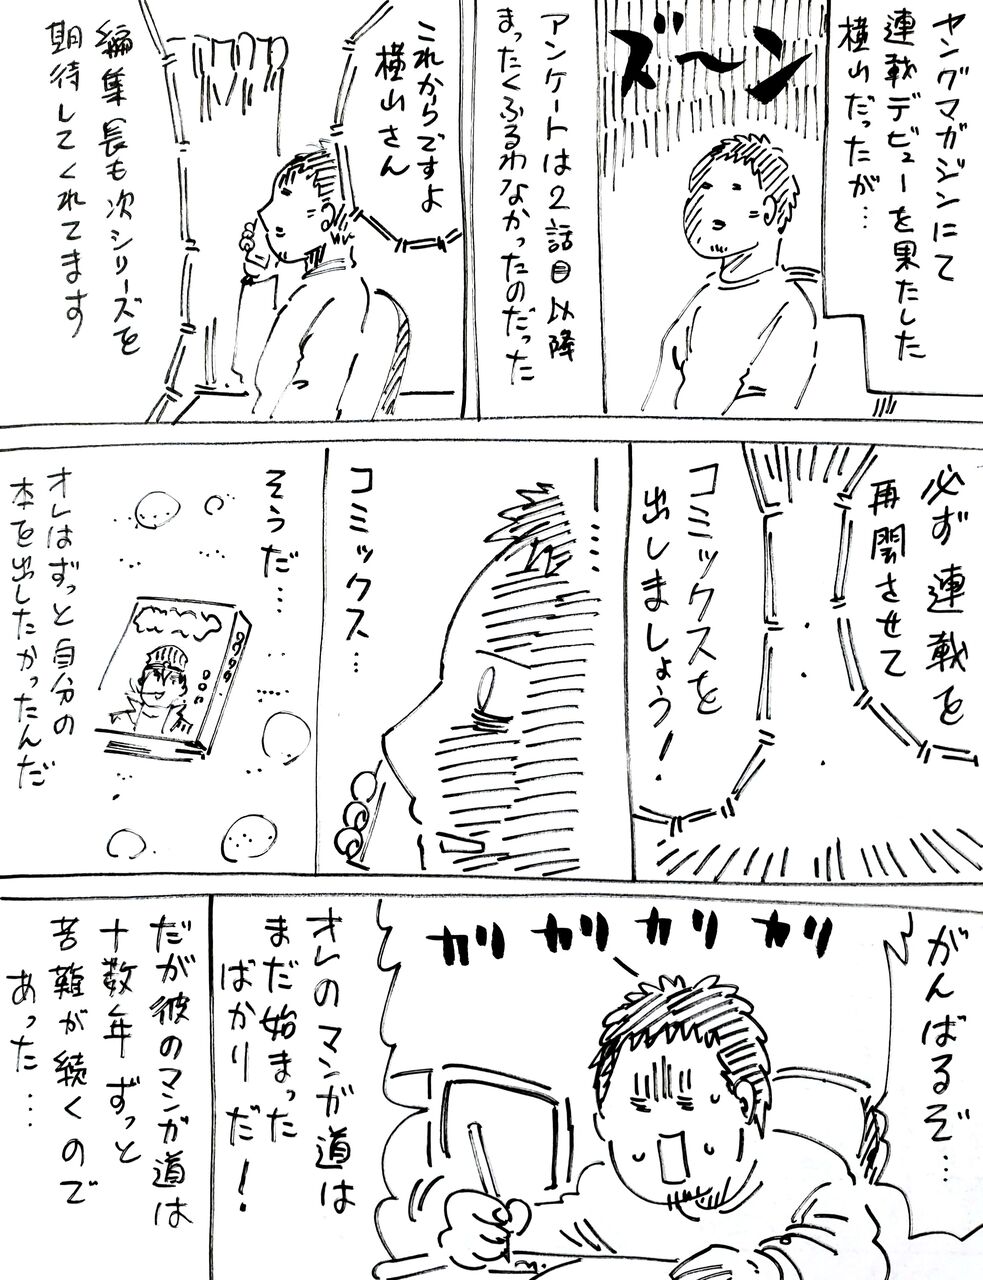 ヤングマガジンにて
連載デビューを果たした
横山だったが…
ズ〜ン
アンケートは2話目以降
まったくふるわなかったのだった
これからですよ
横山さん
編集長も次シリーズを
期待してくれてます
必ず連載を
再開させて
コミックスを
出しましょう!
ー…
コミックス…
そうだ…
オレはずっと自分の
本を出したかったんだ
がんばるぞ…
カリカリカリカリ
オレのマンガ道は
まだ始まった
ばかりだ!
だが彼のマンガ道は
十数年ずっと
苦難が続くので
あった…